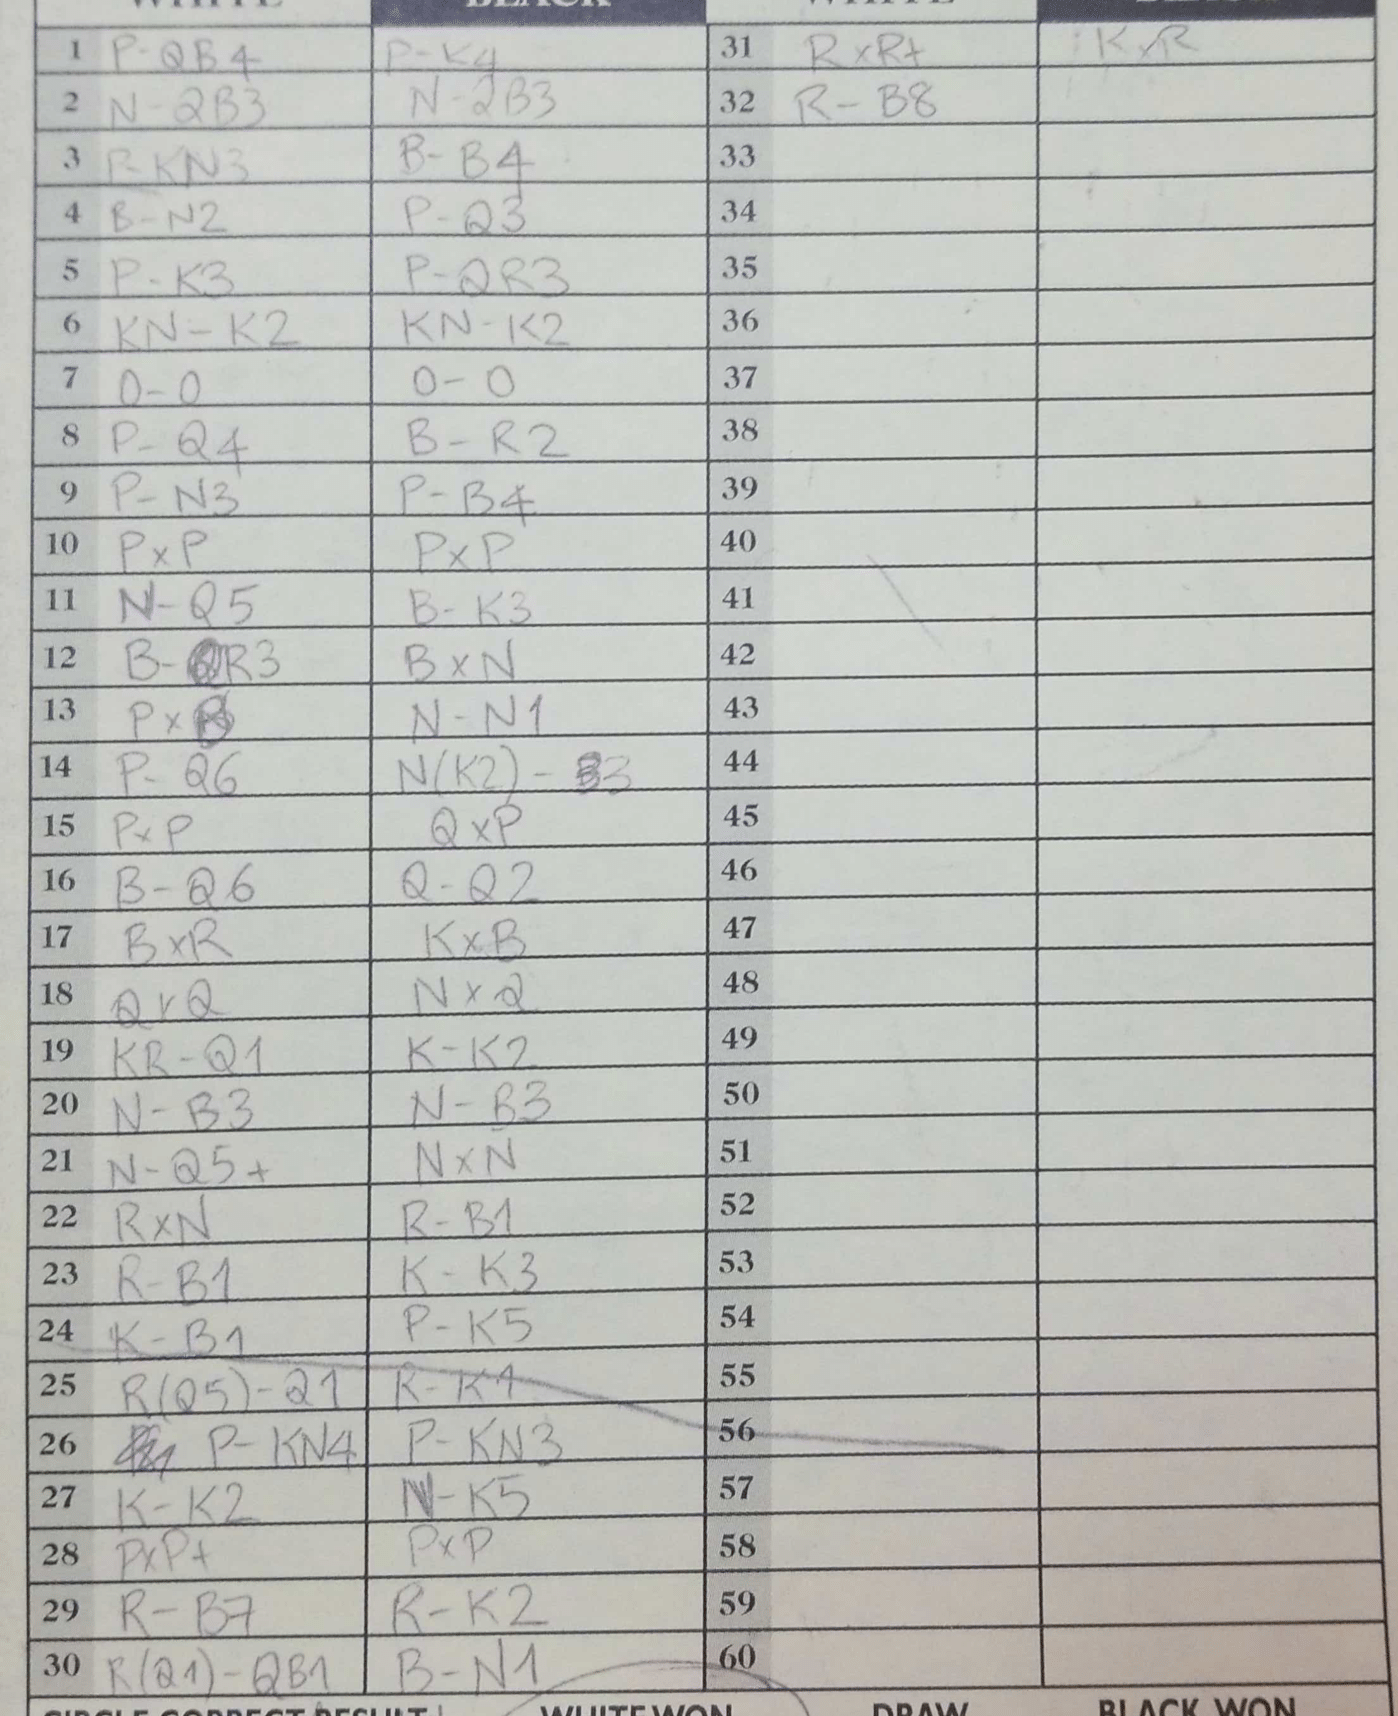 WHITE BLACK WHITE BLACK
1 P-QB4 P-K4 31 RxR+ KxR
2 N-QB3 N-QB3 32 R-B8
3 P-KN3 B-B4 33
4 B-N2 P-Q3 34
5 P-K3 P-QR3 35
6 KN-K2 KN-K2 36
7 0-0 0-0 37
8 P-Q4 B-R2 38
9 P-N3 P-B4 39
10 PxP PxP 40
11 N-Q5 B-K3 41
12 B-R3 BxN 42
13 PxB N-N1 43
14 P-Q6 N(K2)-B3 44
15 PxP QxP 45
16 B-Q6 Q-Q2 46
17 BxR KxB 47
18 QxQ NxQ 48
19 KR-Q1 K-K2 49
20 N-B3 N-B3 50
21 N-Q5+ NxN 51
22 RxN R-B1 52
23 R-B1 K-K3 53
24 K-B1 P-K5 54
25 R(Q5)-Q1 R-K1 55
26 P-KN4 P-KN3 56
27 K-K2 N-K5 57
28 PxP+ PxP 58
29 R-B7 R-K2 59
30 R(Q1)-QB1 B-N1 60
CIRCLE CORRECT RESULT: WHITE WON DRAW BLACK WON